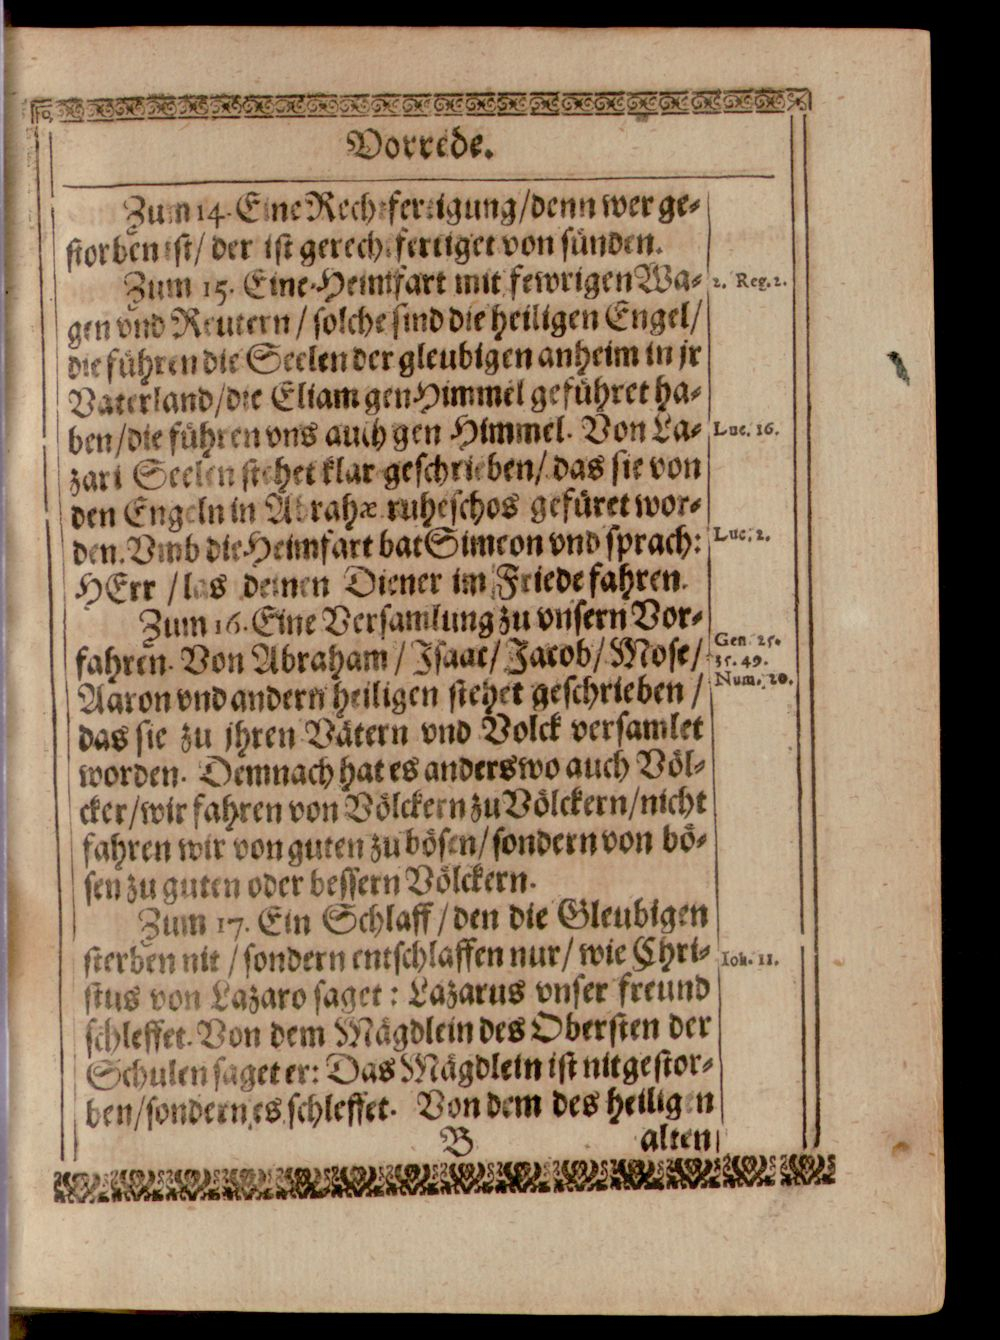 Vorrede.
Zum 14. Eine Rechtfertigung/denn wer ge-
storben ist/ der ist gerechtfertiget von sünden.
Zum 15. Eine Heimfart mit fewrigen Wa-
2. Reg. 2.
gen vnd Reutern / solche sind die heiligen Engel/
die führen die Seelen der gleubigen anheim in jr
Vaterland/die Eliam gen Himmel geführet ha-
ben/die führen vns auch gen Himmel. Von La-
Luc. 16.
zari Seelen stehet klar geschrieben/ das sie von
den Engeln in Abrahæ ruheschos gefüret wor-
den. Vmb die Heimfart bat Simeon vnd sprach:
Luc. 2.
HErr / las deinen Diener im Friede fahren.
Zum 16. Eine Versamlung zu vnsern Vor-
fahren. Von Abraham / Isaac/ Jacob/ Mose/
Gen. 25.
35. 49.
Num. 20.
Aaron vnd andern heiligen stehet geschrieben /
das sie zu jhren Vätern vnd Volck versamlet
worden. Demnach hat es anderswo auch Völ-
cker/wir fahren von Völckern zu Völckern/nicht
fahren wir von guten zu bösen/ sondern von bö-
sen zu guten oder bessern Völckern.
Zum 17. Ein Schlaff / den die Gleubigen
sterben nit / sondern entschlaffen nur/ wie Chri-
Ioh. 11.
stus von Lazaro saget : Lazarus vnser freund
schleffet. Von dem Mägdlein des Obersten der
Schulen saget er: Das Mägdlein ist nit gestor-
ben/sondern es schleffet. Von dem des heiligen
B alten